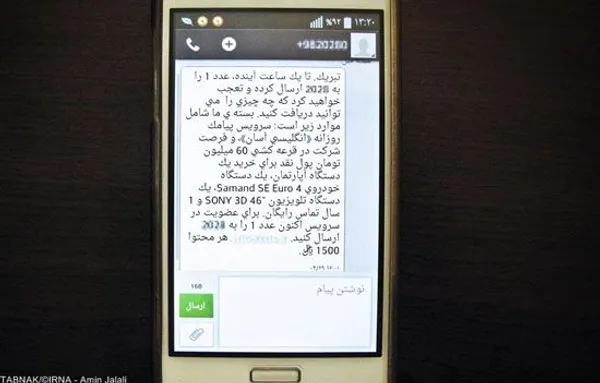 %۹۲ ۱۳:۲۰
تبريك. تا يك ساعت آينده، عدد 1 را
به 2028 ارسال كرده و تعجب
خواهيد كرد كه چه چيزي را مي
توانيد دريافت كنيد. بسته ي ما شامل
موارد زير است: سرويس پيامك
روزانه (انگليسي آسان)، و فرصت
شركت در قرعه كشي 60 ميليون
تومان پول نقد براي خريد يك
دستگاه آپارتمان، يك دستگاه
خودروي Samand SE Euro 4، يك
دستگاه تلويزيون "SONY 3D 46 و 1
سال تماس رايگان. براي عضويت در
سرويس اكنون عدد 1 را به 2028
ارسال كنيد. هر محتوا
1500 ريال.
168
نوشتن پیام
ارسال
TABNAK/©IRNA - Amin Jalali